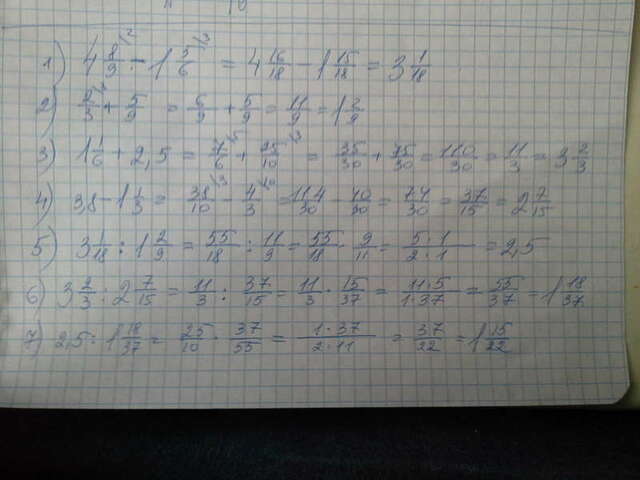 1) 4 8/9 - 1 5/6 = 4 16/18 - 1 15/18 = 3 1/18
2) 2/3 + 5/9 = 6/9 + 5/9 = 11/9 = 1 2/9
3) 1 1/6 + 2,5 = 7/6 + 25/10 = 35/30 + 75/30 = 110/30 = 11/3 = 3 2/3
4) 3,8 - 1 1/3 = 38/10 - 4/3 = 114/30 - 40/30 = 74/30 = 37/15 = 2 7/15
5) 3 1/18 : 1 2/9 = 55/18 : 11/9 = 55/18 · 9/11 = 5·1/2·1 = 2,5
6) 3 2/3 : 2 7/15 = 11/3 : 37/15 = 11/3 · 15/37 = 11·5/1·37 = 55/37 = 1 18/37
7) 2,5 : 1 18/37 = 25/10 · 37/55 = 1·37/2·11 = 37/22 = 1 15/22